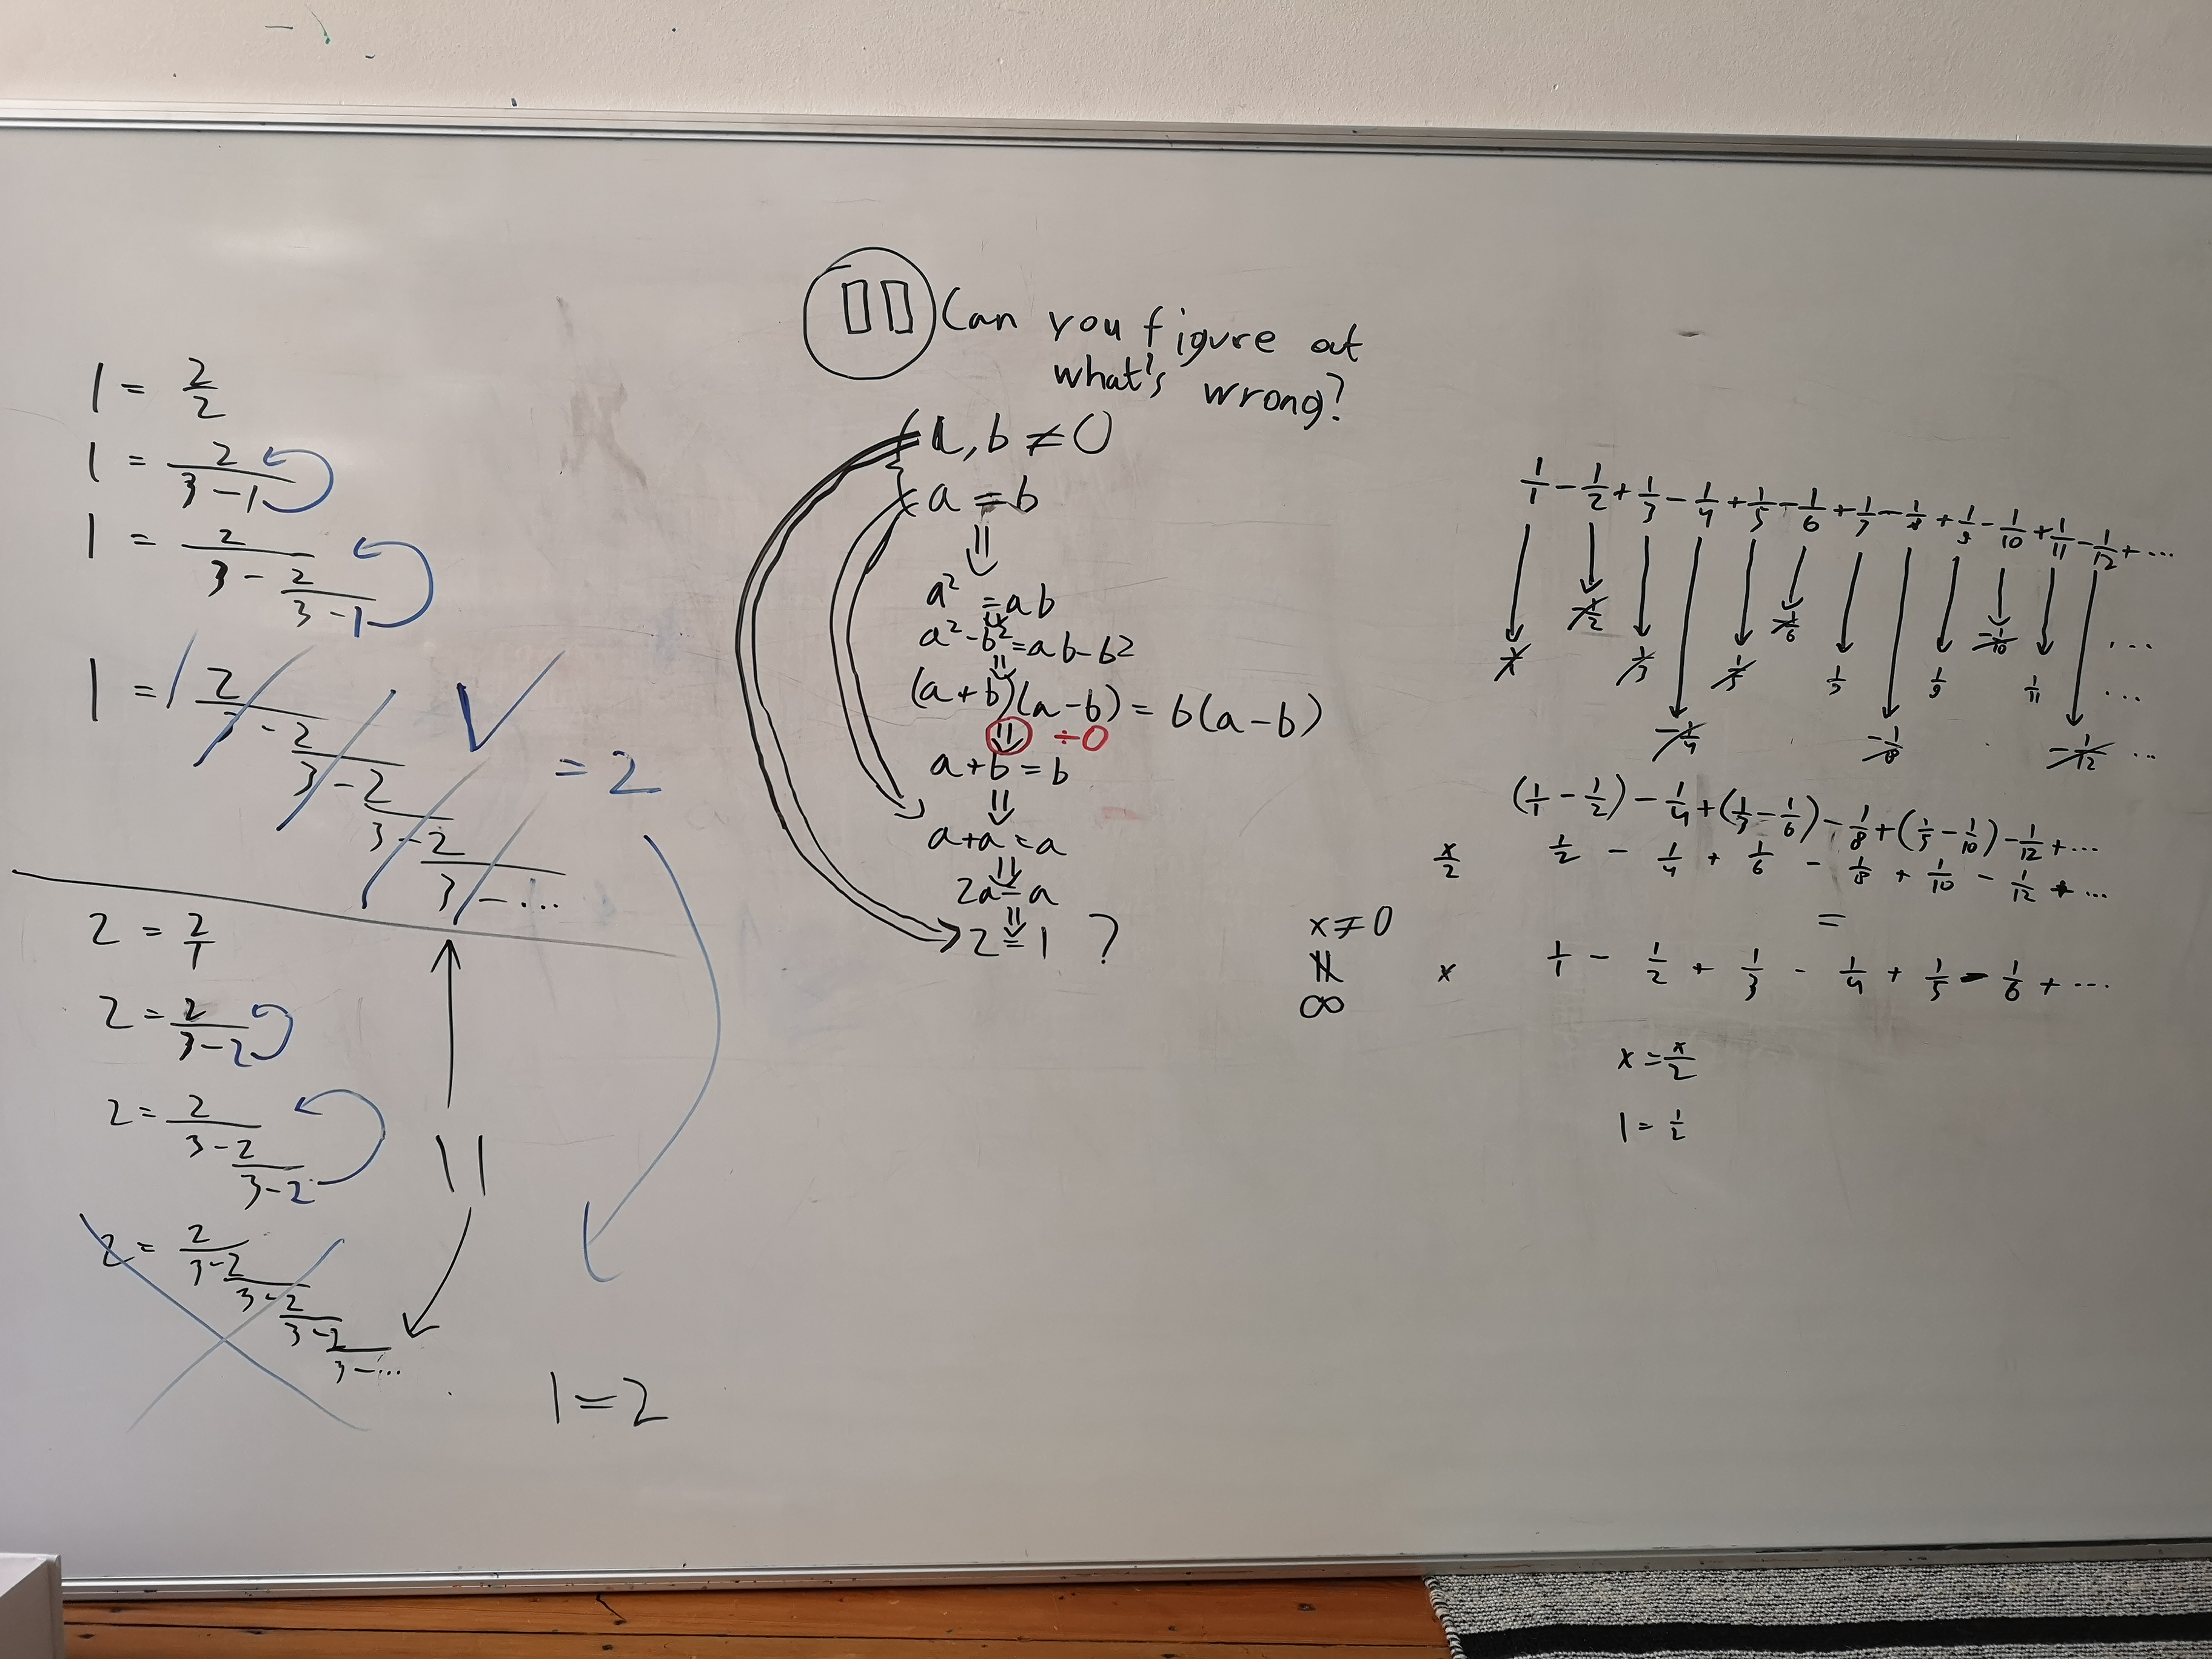 1 = 2/2
1 = 2/(3-1)
1 = 2/(3-2/(3-1))
1 = 2/(3-2/(3-2/(3-2/(3-...)))) = 2
2 = 2/1
2 = 2/(3-2)
2 = 2/(3-2/(3-2))
2 = 2/(3-2/(3-2/(3-2/(3-...))))
=
1=2
Can you figure out
what's wrong?
a, b ≠ 0
a = b
⇓
a² = ab
⇓
a²-b² = ab-b²
⇓
(a+b)(a-b) = b(a-b)
⇓ ÷0
a+b = b
⇓
a+a = a
⇓
2a = a
⇓
2 = 1 ?
1/1 - 1/2 + 1/3 - 1/4 + 1/5 - 1/6 + 1/7 - 1/8 + 1/9 - 1/10 + 1/11 - 1/12 + ...
-1/2 -1/6 -1/10 ...
1/1 1/3 1/5 1/7 1/9 1/11 ...
-1/4 -1/8 -1/12 ...
(1/1 - 1/2) - 1/4 + (1/3 - 1/6) - 1/8 + (1/5 - 1/10) - 1/12 + ...
x/2 1/2 - 1/4 + 1/6 - 1/8 + 1/10 - 1/12 + ...
=
x≠0
∦
∞
x 1/1 - 1/2 + 1/3 - 1/4 + 1/5 - 1/6 + ...
x = x/2
1 = 1/2